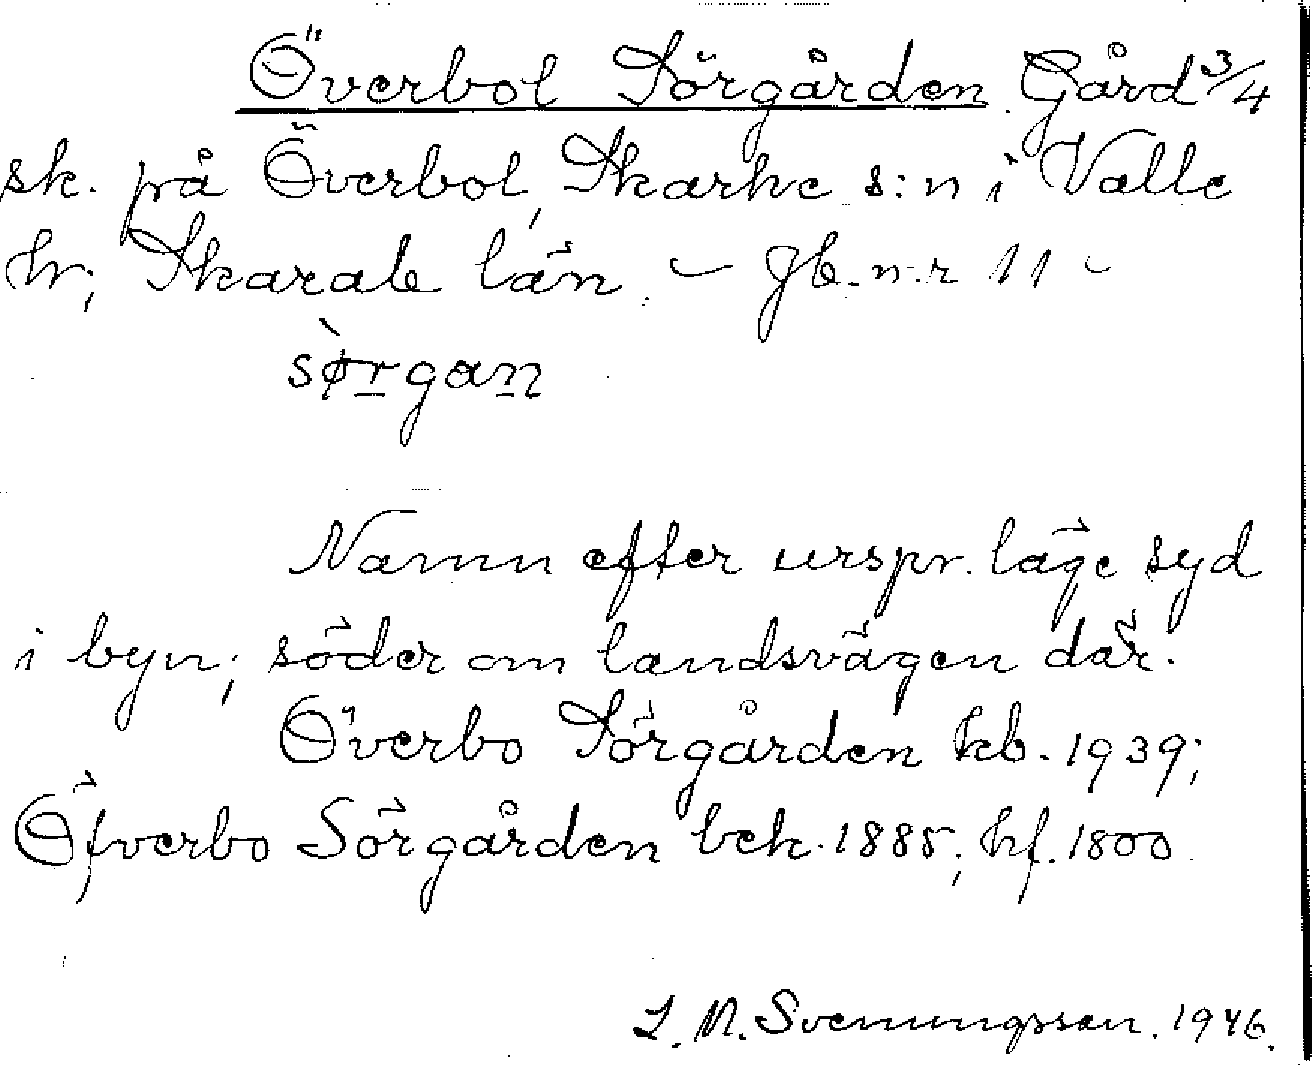 Överbol Sörgården Gård 3/4
sk. på Överbol, Skarke s:n i Valle
hr; Skarab län. – Jb. n:r 11 –
sørgan
Namn efter urspr. läge syd
i byn; söder om landsvägen där.
Överbo Sörgården kb. 1939;
Öfverbo Sörgården bek. 1885; hf. 1800
L. M. Svenungsson. 1946.